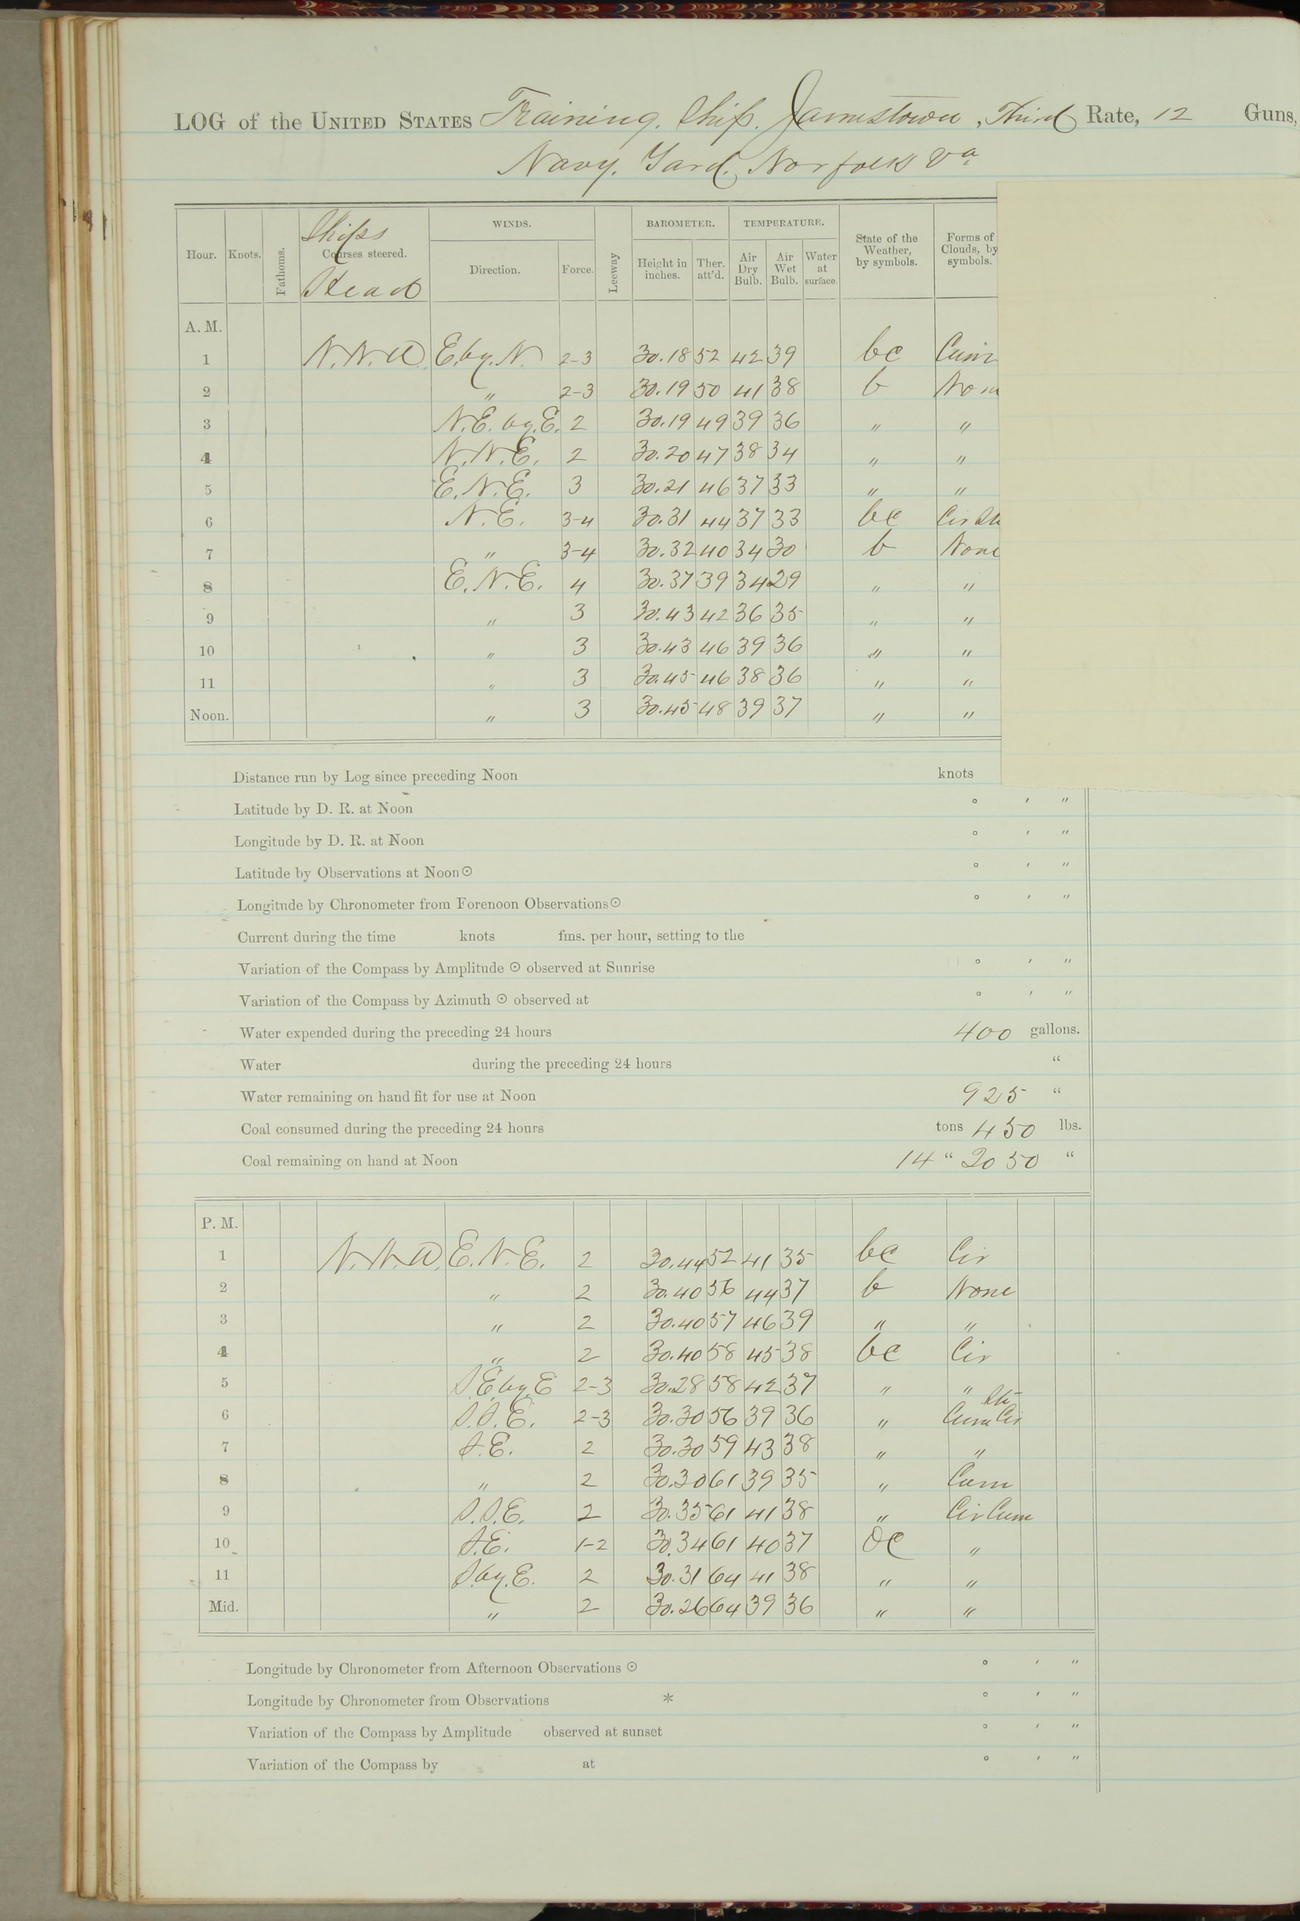 LOG of the UNITED STATES Training. Ship. Jamestown, Third Rate, 12 Guns,
Navy. Yard, Norfolk Va
Hour. Knots. Fathoms. Ships Courses steered. Head WINDS. Direction. Force. Leeway BAROMETER. Height in inches. Ther. att'd. TEMPERATURE. Air Dry Bulb. Air Wet Bulb. Water at surface. State of the Weather, by symbols. Forms of Clouds, by symbols.
A. M.
1 N.N.W. E.by.N. 2-3 30.18 52 42 39 bc Cum
2 " 2-3 30.19 50 41 38 b Non
3 N.E. by.E. 2 30.19 49 39 36 " "
4 N.N.E. 2 30.20 47 38 34 " "
5 E.N.E. 3 30.21 46 37 33 " "
6 N.E. 3-4 30.31 44 37 33 bc Cir St
7 " 3-4 30.32 40 34 30 b None
8 E.N.E. 4 30.37 39 34 29 " "
9 " 3 30.43 42 36 35 " "
10 " 3 30.43 46 39 36 " "
11 " 3 30.45 46 38 36 " "
Noon. " 3 30.45 48 39 37 " "
Distance run by Log since preceding Noon knots
Latitude by D. R. at Noon ° ' "
Longitude by D. R. at Noon ° ' "
Latitude by Observations at Noon ☉ ° ' "
Longitude by Chronometer from Forenoon Observations ☉ ° ' "
Current during the time knots fms. per hour, setting to the
Variation of the Compass by Amplitude ☉ observed at Sunrise ° ' "
Variation of the Compass by Azimuth ☉ observed at ° ' "
Water expended during the preceding 24 hours 400 gallons.
Water during the preceding 24 hours "
Water remaining on hand fit for use at Noon 925 "
Coal consumed during the preceding 24 hours tons 450 lbs.
Coal remaining on hand at Noon 14 " 2050 "
P. M.
1 N.N.W. E.N.E. 2 30.44 52 41 35 bc Cir
2 " 2 30.40 56 44 37 b None
3 " 2 30.40 57 46 39 " "
4 " 2 30.40 58 45 38 bc Cir
5 S.E.by.E 2-3 30.28 58 42 37 " "
6 S.S.E. 2-3 30.30 56 39 36 " Cum Cir St
7 S.E. 2 30.30 59 43 38 " "
8 " 2 30.30 61 39 35 " Cum
9 S.S.E. 2 30.35 61 41 38 " Cir Cum
10 S.E. 1-2 30.34 61 40 37 oc "
11 S.by.E. 2 30.31 64 41 38 " "
Mid. " 2 30.26 64 39 36 " "
Longitude by Chronometer from Afternoon Observations ☉ ° ' "
Longitude by Chronometer from Observations * ° ' "
Variation of the Compass by Amplitude observed at sunset ° ' "
Variation of the Compass by at ° ' "